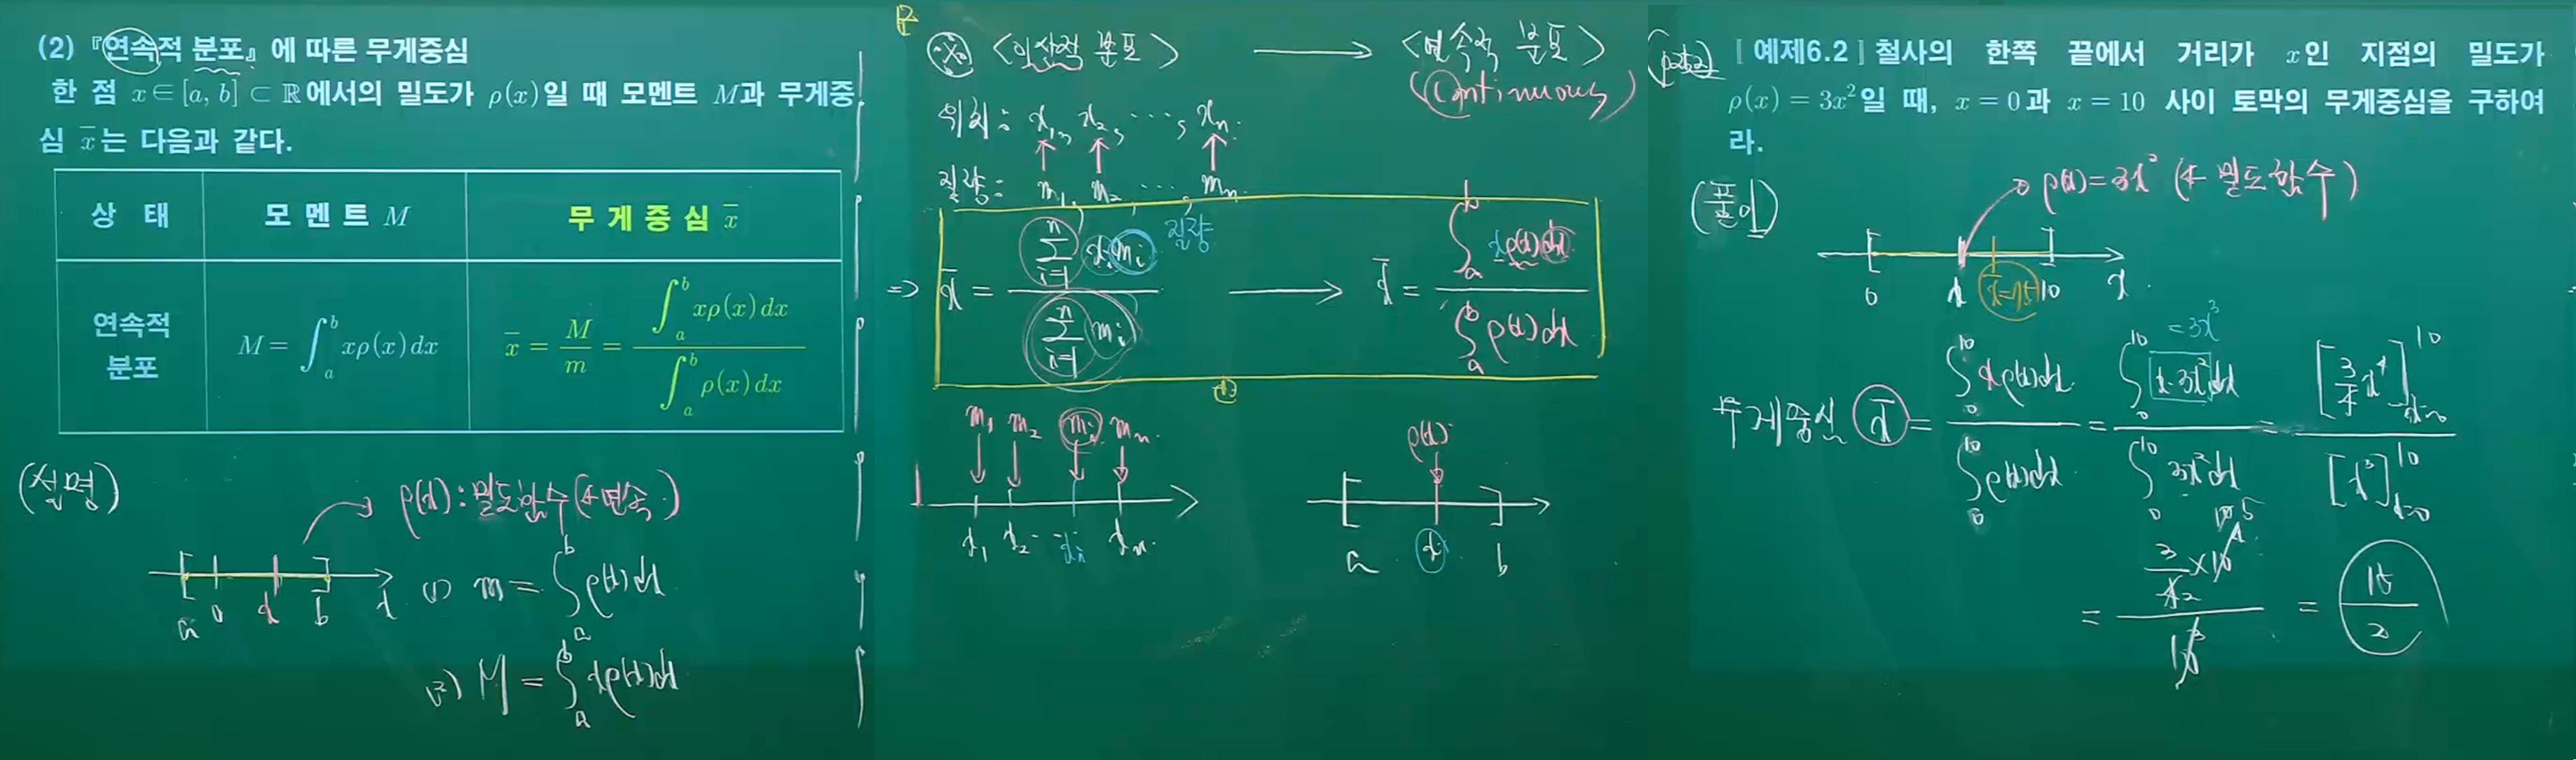 (2) 『연속적 분포』에 따른 무게중심
한 점 x∈[a, b]⊂ℝ에서의 밀도가 ρ(x)일 때 모멘트 M과 무게중
심 x̄는 다음과 같다.
상 태 모멘트 M 무게중심 x̄
연속적 분포 M=∫_a^b xρ(x)dx x̄ = M/m = ∫_a^b xρ(x)dx / ∫_a^b ρ(x)dx
(설명)
ρ(x) : 밀도함수 (← 연속)
a 0 x b x
(1) m = ∫_a^b ρ(x)dx
(2) M = ∫_a^b xρ(x)dx
<이산적 분포> → <연속적 분포>
(Continuous)
위치: x₁, x₂, ⋯, xₙ
질량: m₁, m₂, ⋯, mₙ
질량
⇒ x̄ = Σ_{i=1}^n xᵢmᵢ / Σ_{i=1}^n mᵢ → x̄ = ∫_a^b xρ(x)dx / ∫_a^b ρ(x)dx
m₁ m₂ mᵢ mₙ
x₁ x₂ ⋯ xᵢ xₙ
ρ(x)
a x b
[예제6.2] 철사의 한쪽 끝에서 거리가 x인 지점의 밀도가
ρ(x) = 3x²일 때, x = 0과 x = 10 사이 토막의 무게중심을 구하여
라.
(풀이)
ρ(x)=3x² (← 밀도함수)
0 x 10 x
=3x³
무게중심 x̄ = ∫_0^10 xρ(x)dx / ∫_0^10 ρ(x)dx = ∫_0^10 x·3x²dx / ∫_0^10 3x²dx = [3/4 x⁴]_{x=0}^{10} / [x³]_{x=0}^{10}
= (3/4 × 10⁴) / 10³ = 15/2